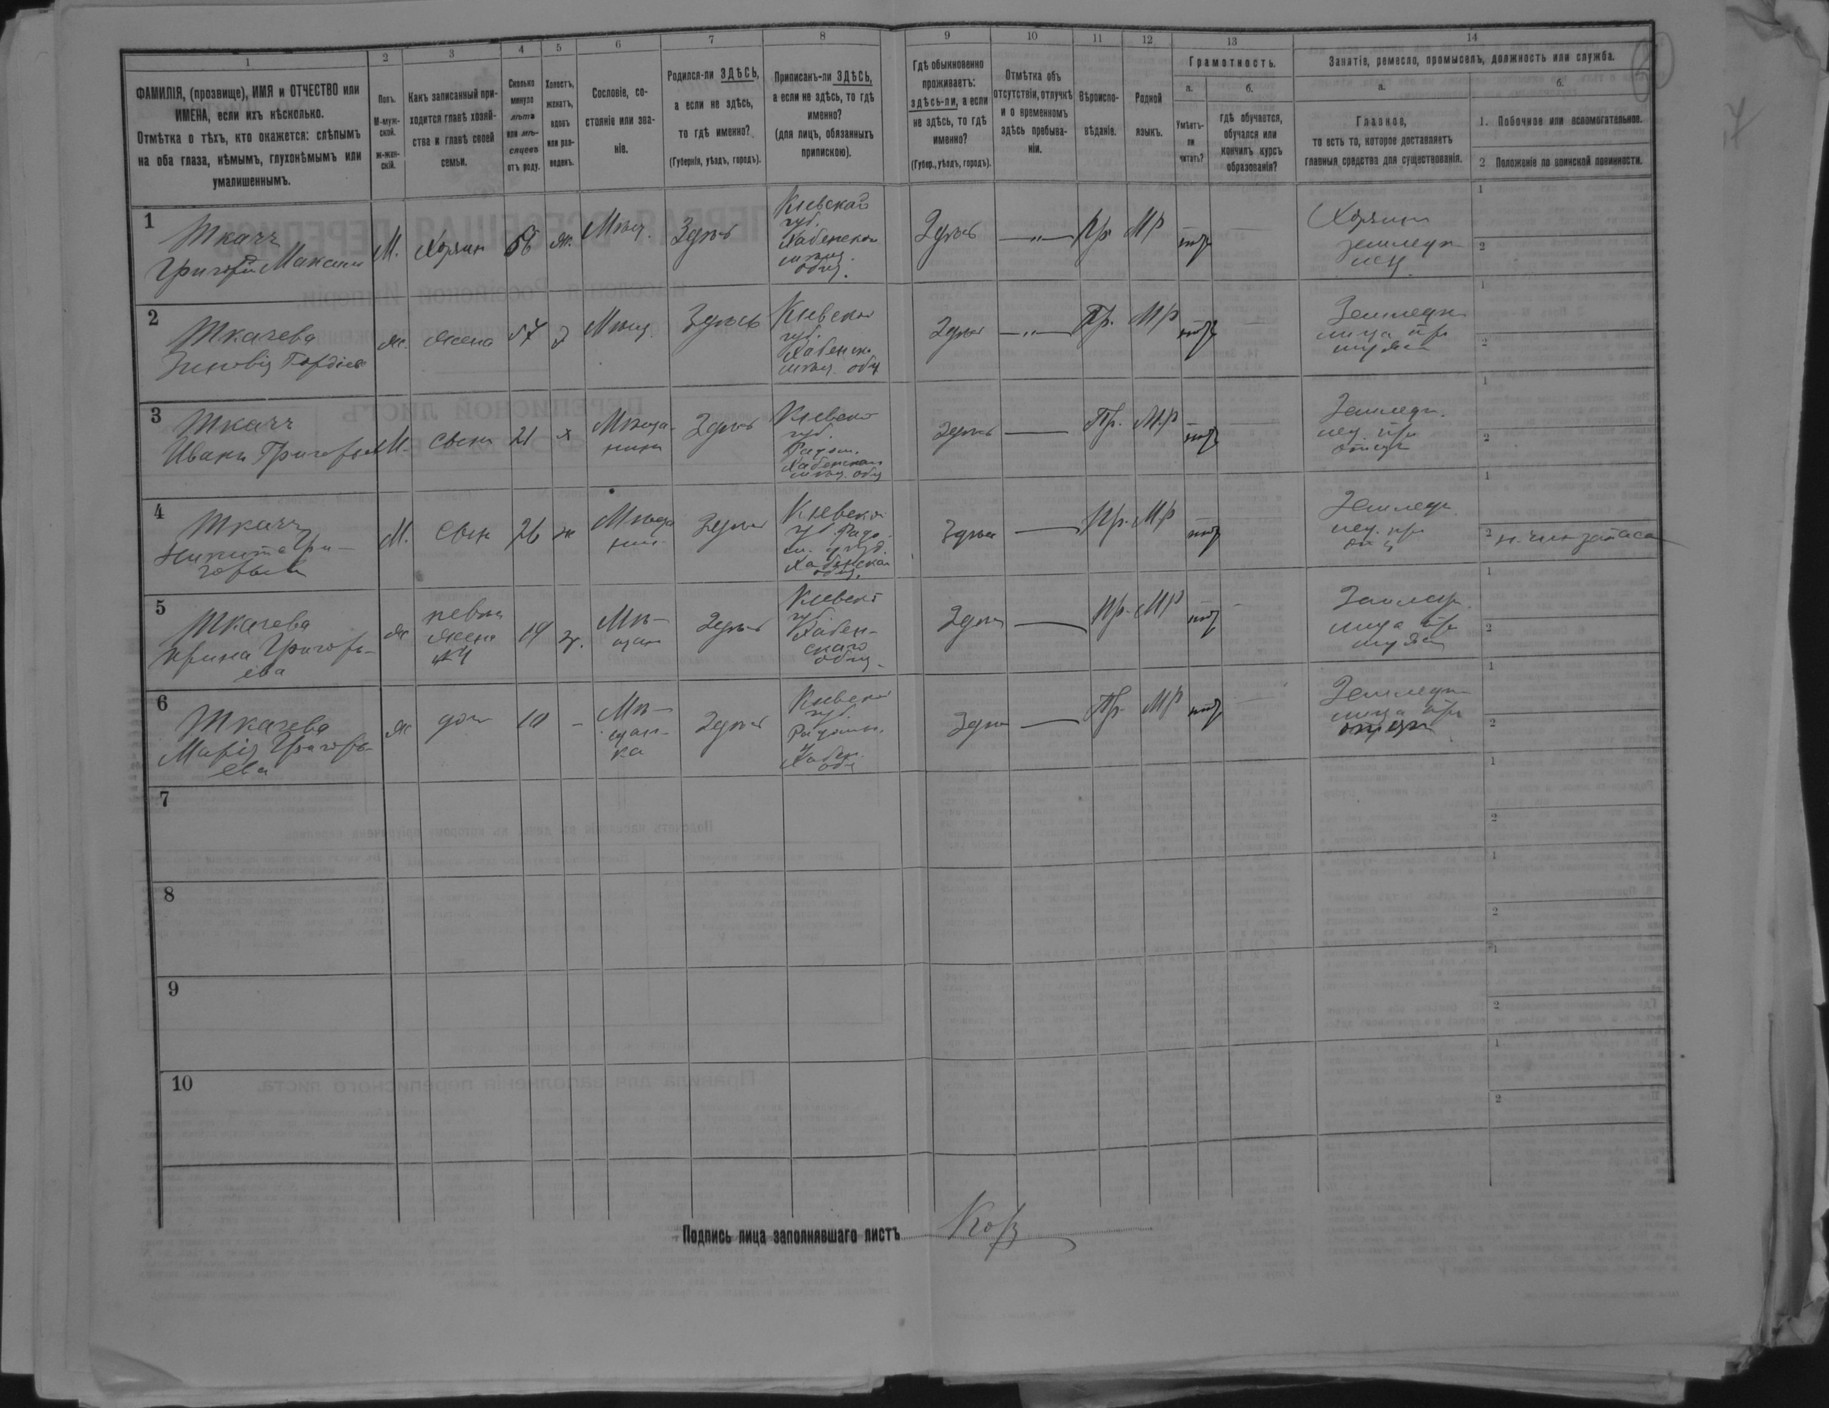 1 2 3 4 5 6 7 8 9 10 11 12 13 14
ФАМИЛІЯ, (прозвище), ИМЯ и ОТЧЕСТВО или
ИМЕНА, если ихъ нѣсколько.
Отмѣтка о тѣхъ, кто окажется: слѣпымъ
на оба глаза, нѣмымъ, глухонѣмымъ или
умалишеннымъ.
Полъ.
М-муж-
ской.
Ж-жен-
скій.
Какъ записанный при-
ходится главѣ хозяй-
ства и главѣ своей
семьи.
Сколько
минуло
лѣтъ
или мѣ-
сяцевъ
отъ роду.
Холостъ,
женатъ,
вдовъ
или раз-
веденъ.
Сословіе, со-
стояніе или зва-
ніе.
Родился-ли ЗДѢСЬ,
а если не здѣсь,
то гдѣ именно?
(Губернія, уѣздъ, городъ).
Приписанъ-ли ЗДѢСЬ,
а если не здѣсь, то гдѣ
именно?
(для лицъ, обязанныхъ
припискою).
Гдѣ обыкновенно
проживаетъ:
здѣсь-ли, а если
не здѣсь, то гдѣ
именно?
(Губер., уѣздъ, городъ).
Отмѣтка объ
отсутствіи, отлучкѣ
и о временномъ
здѣсь пребыва-
ніи.
Вѣроиспо-
вѣданіе.
Родной
языкъ.
Грамотность.
а.
Умѣетъ-
ли
читать?
б.
гдѣ обучается,
обучался или
кончилъ курсъ
образованія?
Занятіе, ремесло, промыселъ, должность или служба.
а.
Главное,
то есть то, которое доставляетъ
главныя средства для существованія.
б.
1. Побочное или вспомогательное.
2 Положеніе по воинской повинности.
1
Ткачъ
Григорій Максим
М. Хозяин 56 ж. Мѣщ. Здѣсь
Кіевской
губ.
Хабенскаго
мѣщ.
общ.
Здѣсь —"— Пр. МР нѣтъ
Хозяин
землед
1
2
2
Ткачева
Зиновія Гордіева
ж. жена 57 з Мѣщ. Здѣсь
Кіевской
губ.
Хабенск
мѣщ. общ
Здѣсь —"— Пр. МР нѣтъ
Землед
лица при
мужѣ
1
2
3
Ткачъ
Иванъ Григорьев
М. сынъ 21 х Мѣща-
нинъ Здѣсь
Кіевской
губ.
Радом.
Хабенскаго
мѣщ. общ
здѣсь — Пр. МР нѣтъ
Землед.
при
отцѣ
1
2
4
Ткачъ
Никита Гри-
горьев
М. сынъ 26 ж Мѣщ Здѣсь
Кіевской
губ Радо-
м. уѣзд.
Хабенскаго
общ.
Здѣсь — Пр. МР нѣтъ
Землед.
при
отц
1
2 н. чин запаса
5
Ткачева
Ирина Григорь-
ева
ж невѣст
жена
№4 19 з. Мѣ-
щан Здѣсь
Кіевской
губ.
Хабен-
скаго
общ.
Здѣсь — Пр. МР нѣтъ
Землед.
лица при
мужѣ
1
2
6
Ткачева
Марія Григорь-
ева
ж доч 10 - Мѣ-
щан-
ка Здѣсь
Кіевской
губ.
Радомы.
у
Хабен.
общ
Здѣсь — Пр. МР нѣтъ
Землед
лица при
отцѣ
1
2
7
1
2
8
1
2
9
1
2
10
1
2
Подпись лица заполнявшаго листъ